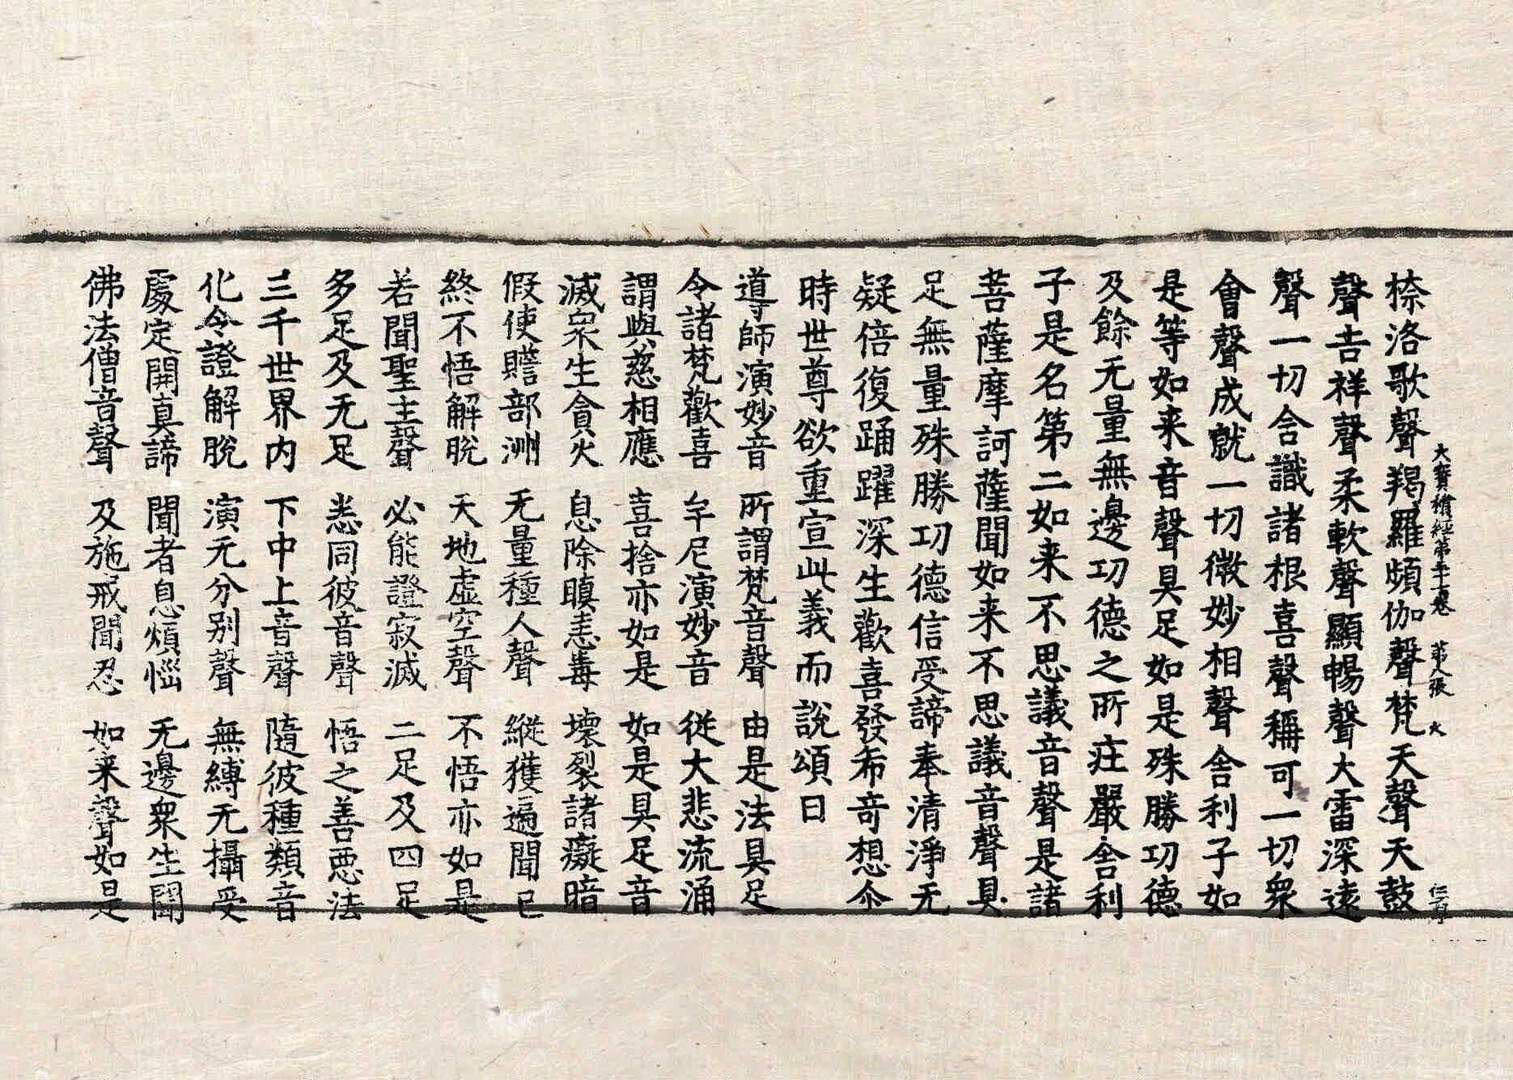 㮈洛歌聲羯羅頻伽聲梵天聲天鼓
大寶積經第三十七卷　第八張　火
聲吉祥聲柔軟聲顯暢聲大雷深遠
聲一切含識諸根喜聲稱可一切衆
會聲成就一切微妙相聲舍利子如
是等如来音聲具足如是殊勝功德
及餘无量無邊功德之所莊嚴舍利
子是名第二如来不思議音聲是諸
菩薩摩訶薩聞如来不思議音聲具
足無量殊勝功德信受諦奉清淨无
疑倍復踊躍深生歡喜發希奇想尒
時世尊欲重宣此義而說頌曰
導師演妙音　所謂梵音聲　由是法具足
令諸梵歡喜　牟尼演妙音　從大悲流涌
謂與慈相應　喜捨亦如是　如是具足音
滅衆生貪火　息除瞋恚毒　壞裂諸癡暗
假使贍部洲　无量種人聲　縱獲遍聞已
終不悟解脫　天地虛空聲　不悟亦如是
若聞聖主聲　必能證寂滅　二足及四足
多足及无足　悉同彼音聲　悟之善惡法
三千世界内　下中上音聲　隨彼種類音
化令證解脫　演无分别聲　無縛无攝受
處定開真諦　聞者息煩惱　无邊衆生聞
佛法僧音聲　及施戒聞忍　如来聲如是